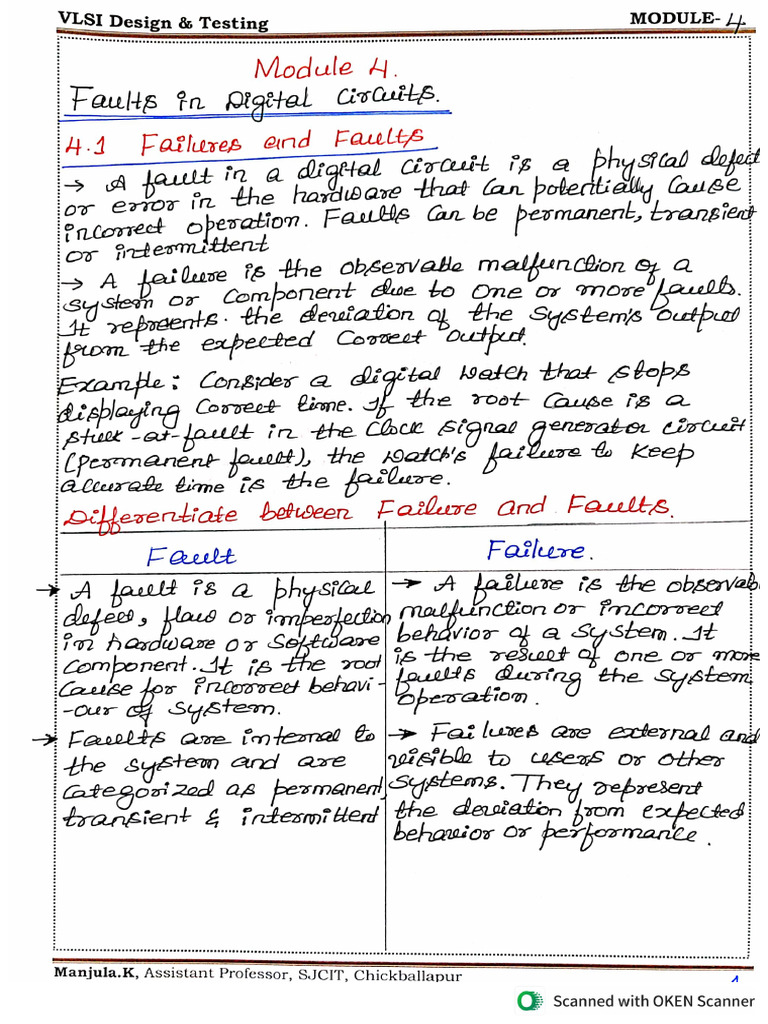 VLSI Design & Testing MODULE-4
Module 4.
Faults in Digital Circuits.
4.1 Failures and Faults
→ A fault in a digital circuit is a physical defect
or error in the hardware that can potentially cause
incorrect operation. Faults can be permanent, transient
or intermittent
→ A failure is the observable malfunction of a
system or component due to one or more faults.
It reprents. the deviation of the system's output
from the expected correct output.
Example: Consider a digital watch that stops
displaying correct time. If the root cause is a
stuck-at-fault in the clock signal generator circuit
(permanent fault), the watch's failure to keep
accurate time is the failure.
Differentiate between Failure and Faults.
Fault
→ A fault is a physical
defect, flaw or imperfection
in hardware or software
component. It is the root
cause for incorrect behavi-
-our of system.
→ Faults are internal to
the system and are
categorized as permanent,
transient & intermittent
Failure.
→ A failure is the observab
malfunction or incorrect
behavior of a system. It
is the result of one or more
faults during the system
operation.
→ Failures are external and
visible to users or other
systems. They represent
the deviation from expected
behavior or performance.
Manjula.K, Assistant Professor, SJCIT, Chickballapur 1
Scanned with OKEN Scanner